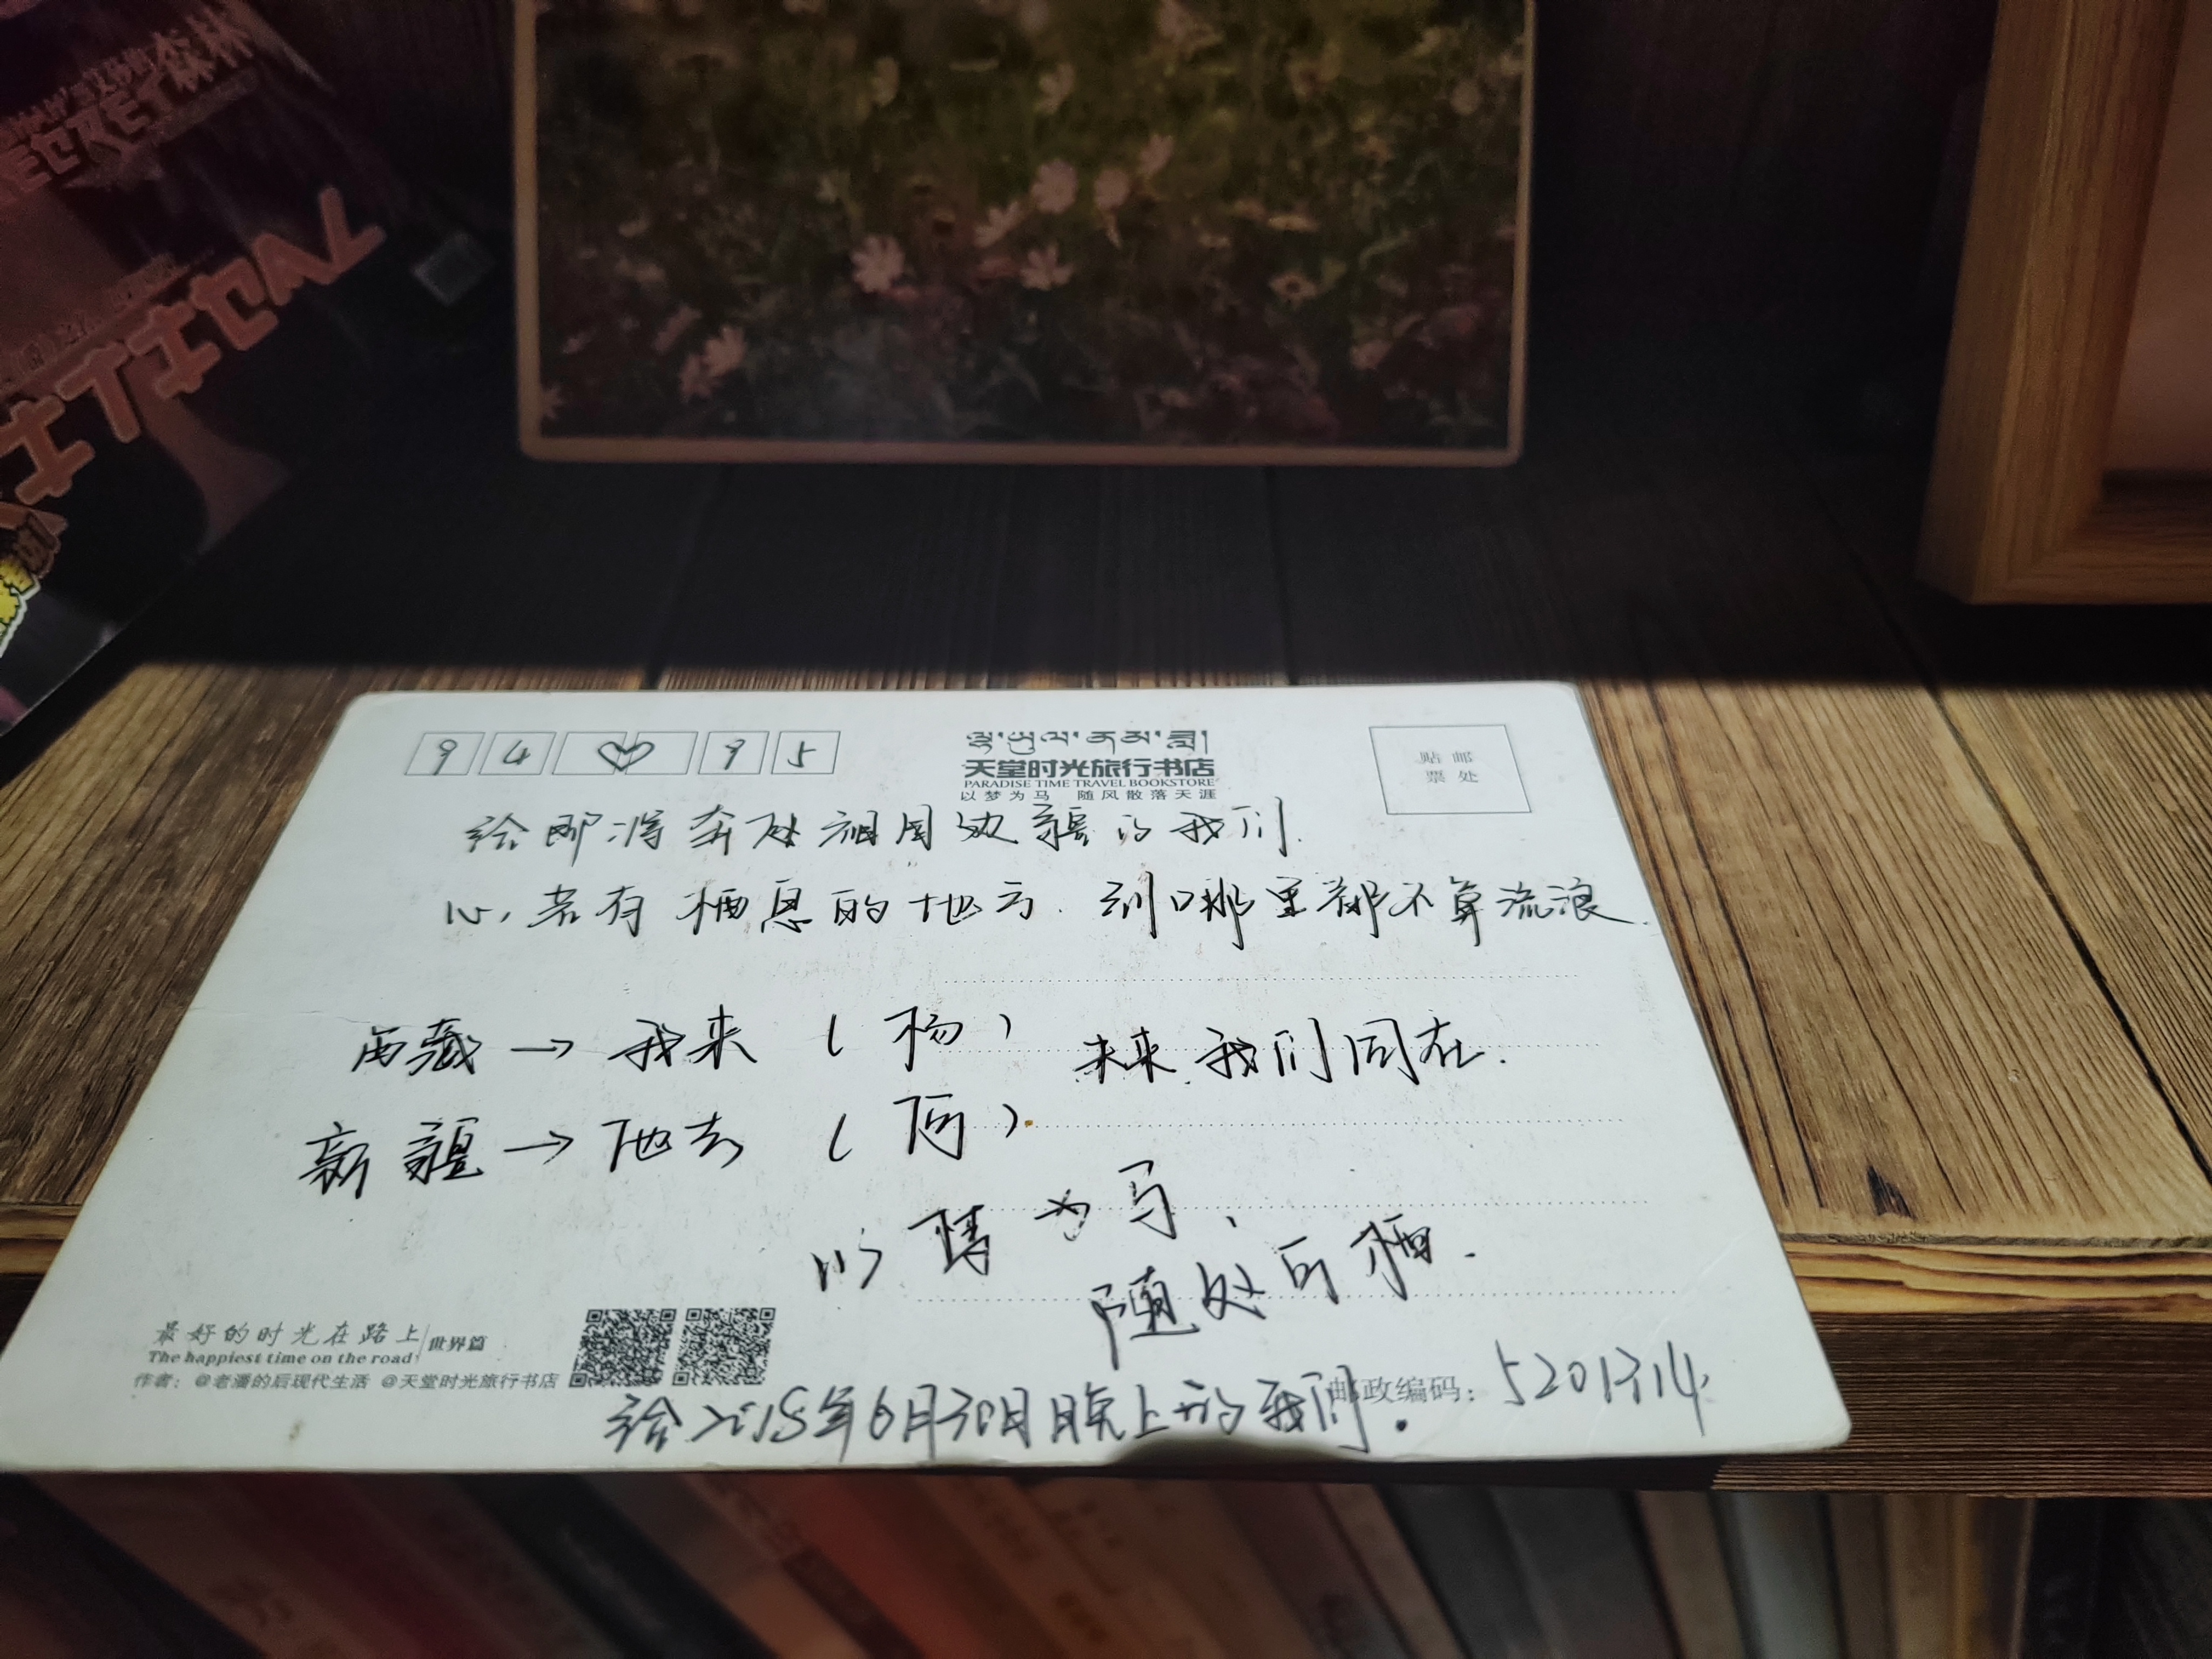 森林
94♡95
ལྷ་ཡུལ་ནམ་ཟླ།
天堂时光旅行书店
PARADISE TIME TRAVEL BOOKSTORE
以梦为马 随风散落天涯
贴邮
票处
给即将奔赴祖国边疆的我们.
心若有栖息的地方.到哪里都不算流浪.
西藏→我来(杨) 未来我们同在.
新疆→他去(阿).
以情为马、
随处可栖.
最好的时光在路上|世界篇
The happiest time on the road
作者:@老潘的后现代生活 @天堂时光旅行书店
邮政编码: 5201314.
给2018年6月30日晚上的我们.